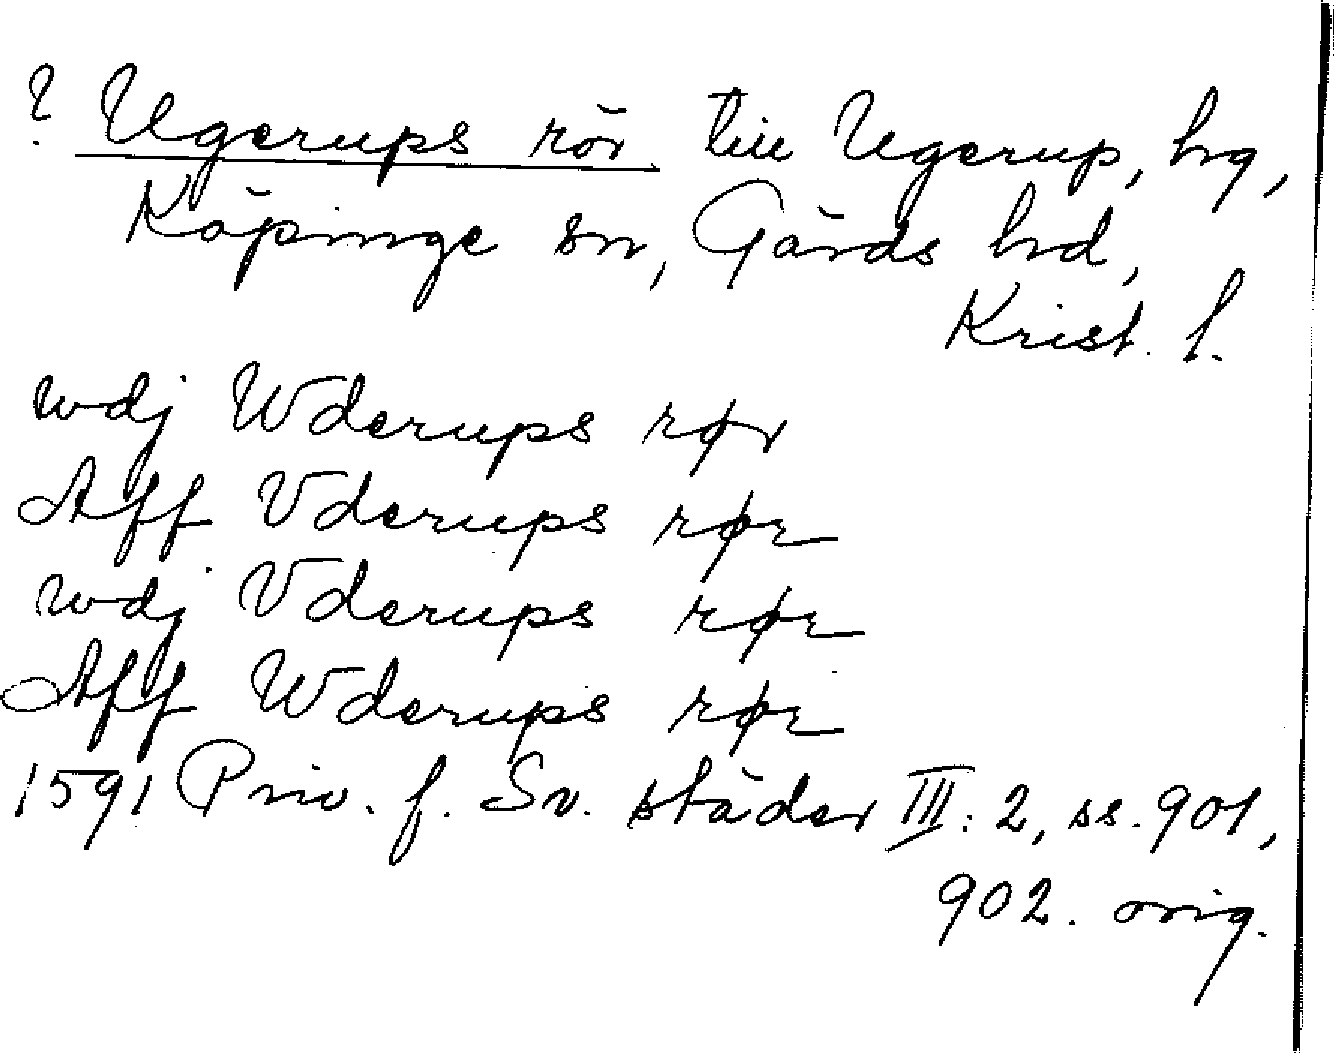 ? Ugerups rör till Ugerup, hg,
Köpinge sn, Gärds hd,
Krist. l.
wdj Wderups rør
Aff Vderups rør
wdj Vderups rør
Aff Wderups rør
1591 Priv. f. Sv. städer III: 2, ss. 901,
902. orig.